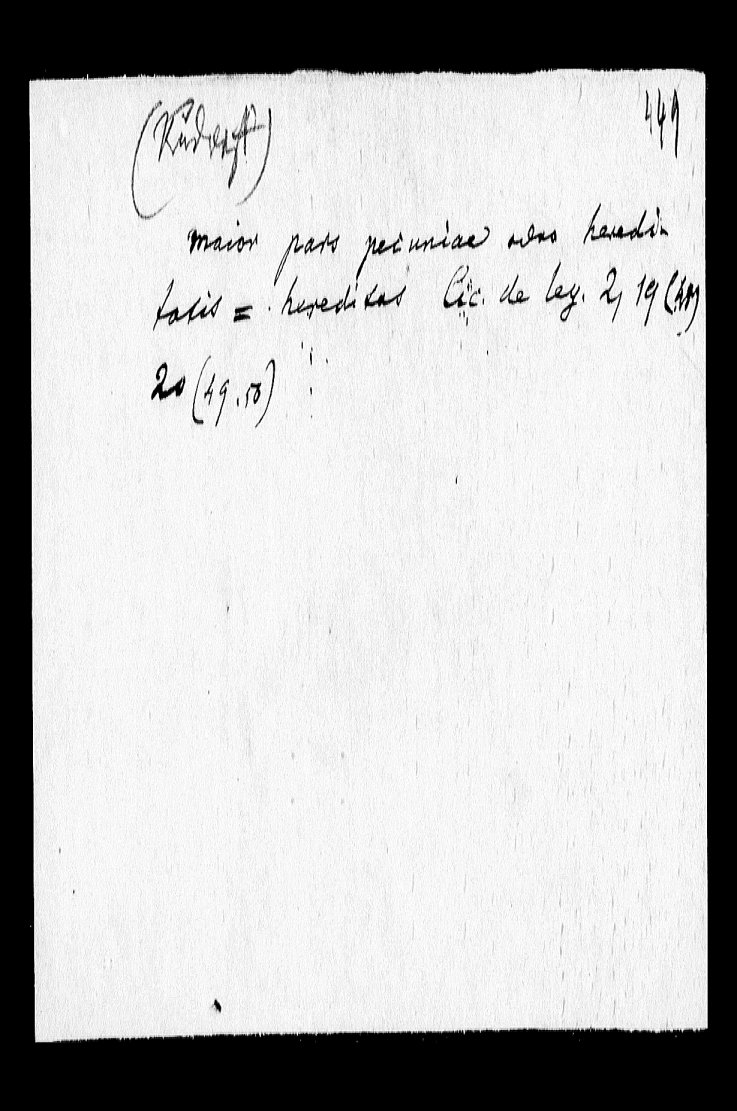 449
(Rudorff)
maior pars pecuniae oder heredi-
tatis = hereditas Cic. de leg. 2, 19 (48)
20 (49.50)